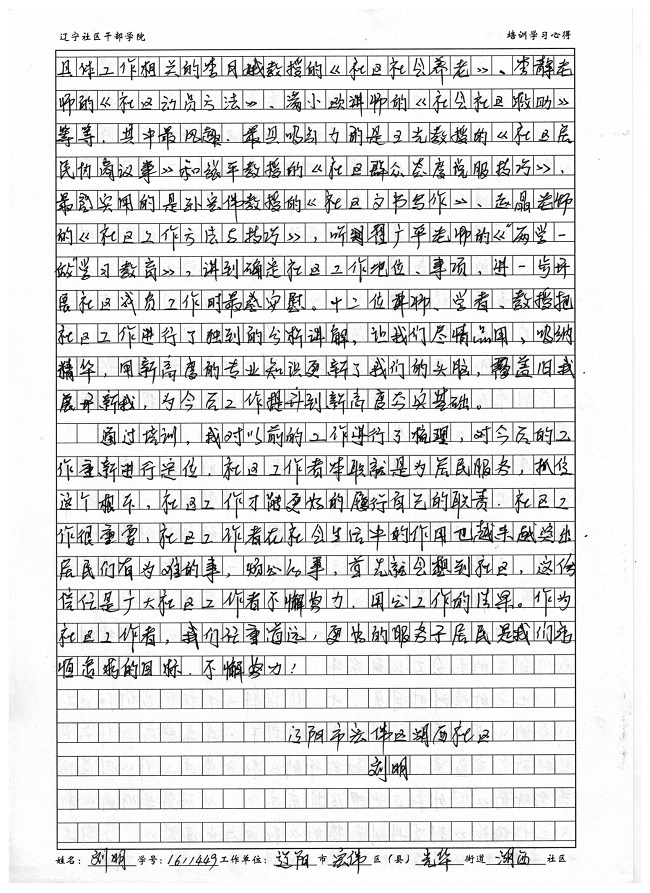 辽宁社区干部学院 培训学习心得
具体工作相关的李月娥教授的《社区社会养老》、李静老
师的《社区动员方法》、潘小欢讲师的《社会社区救助》
等等，其中最风趣、最具吸引力的是王光教授的《社区居
民协商议事》和张平教授的《社区群众态度说服技巧》，
最经实用的是孙宏伟教授的《社区文书写作》、赵晶老师
的《社区工作方法与技巧》，听到程广平老师的《“两学一
做”学习教育》，讲到确定社区工作地位、事项，进一步开
展社区党员工作时最经实慰。十二位讲师、学者、教授把
社区工作进行了独到的分析讲解，让我们尽情品用，吸纳
精华，用新高度的专业知识更新了我们的头脑，覆盖旧我
展开新我，为今后工作提升到新高度夯实基础。
通过培训，我对以前的工作进行了梳理，对今后的工
作重新进行定位，社区工作者本职就是为居民服务，抓住
这个根本，社区工作才能更好的履行自己的职责，社区工
作很重要，社区工作者在社会生活中的作用也越来越突出
居民们有为难的事，烦心的事，首先就会想到社区，这份
信任是广大社区工作者不懈努力、用心工作的结果。作为
社区工作者，我们任重道远，更好的服务于居民是我们永
恒追求的目标，不懈努力！
辽阳市宏伟区湖西社区
刘明
姓名：刘明 学号：1611449 工作单位：辽阳 市 宏伟 区（县） 光华 街道 湖西 社区